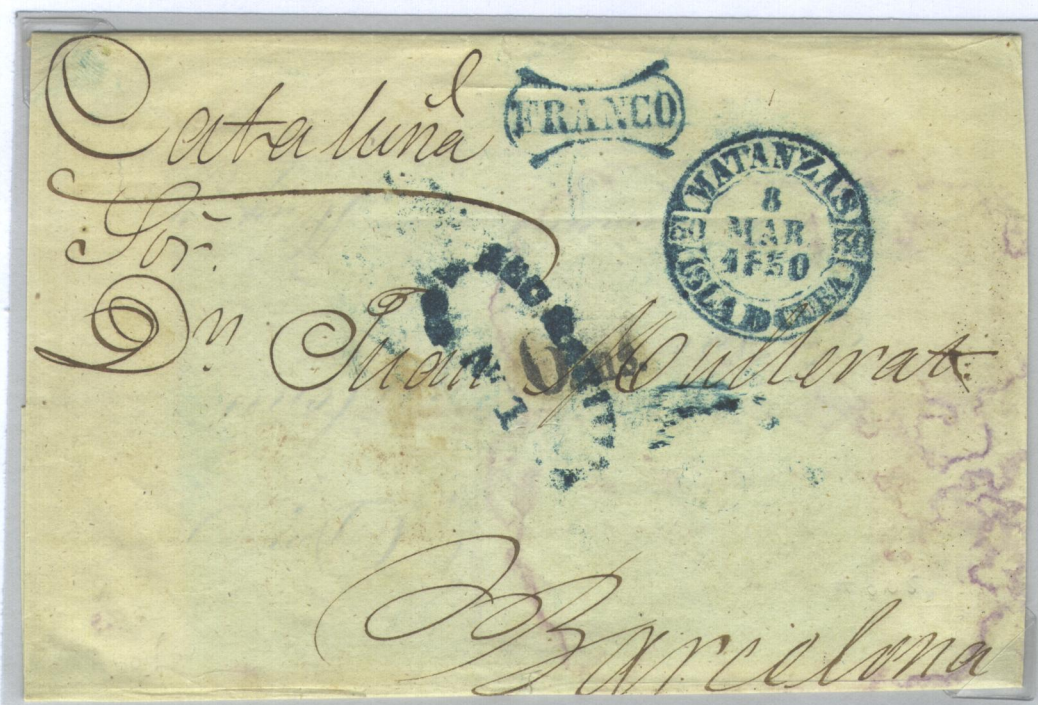 Cataluña
FRANCO
MATANZAS
8
MAR
1850
ISLA DE CUBA
Sor.
Dn Juan Mullerat.
Barcelona